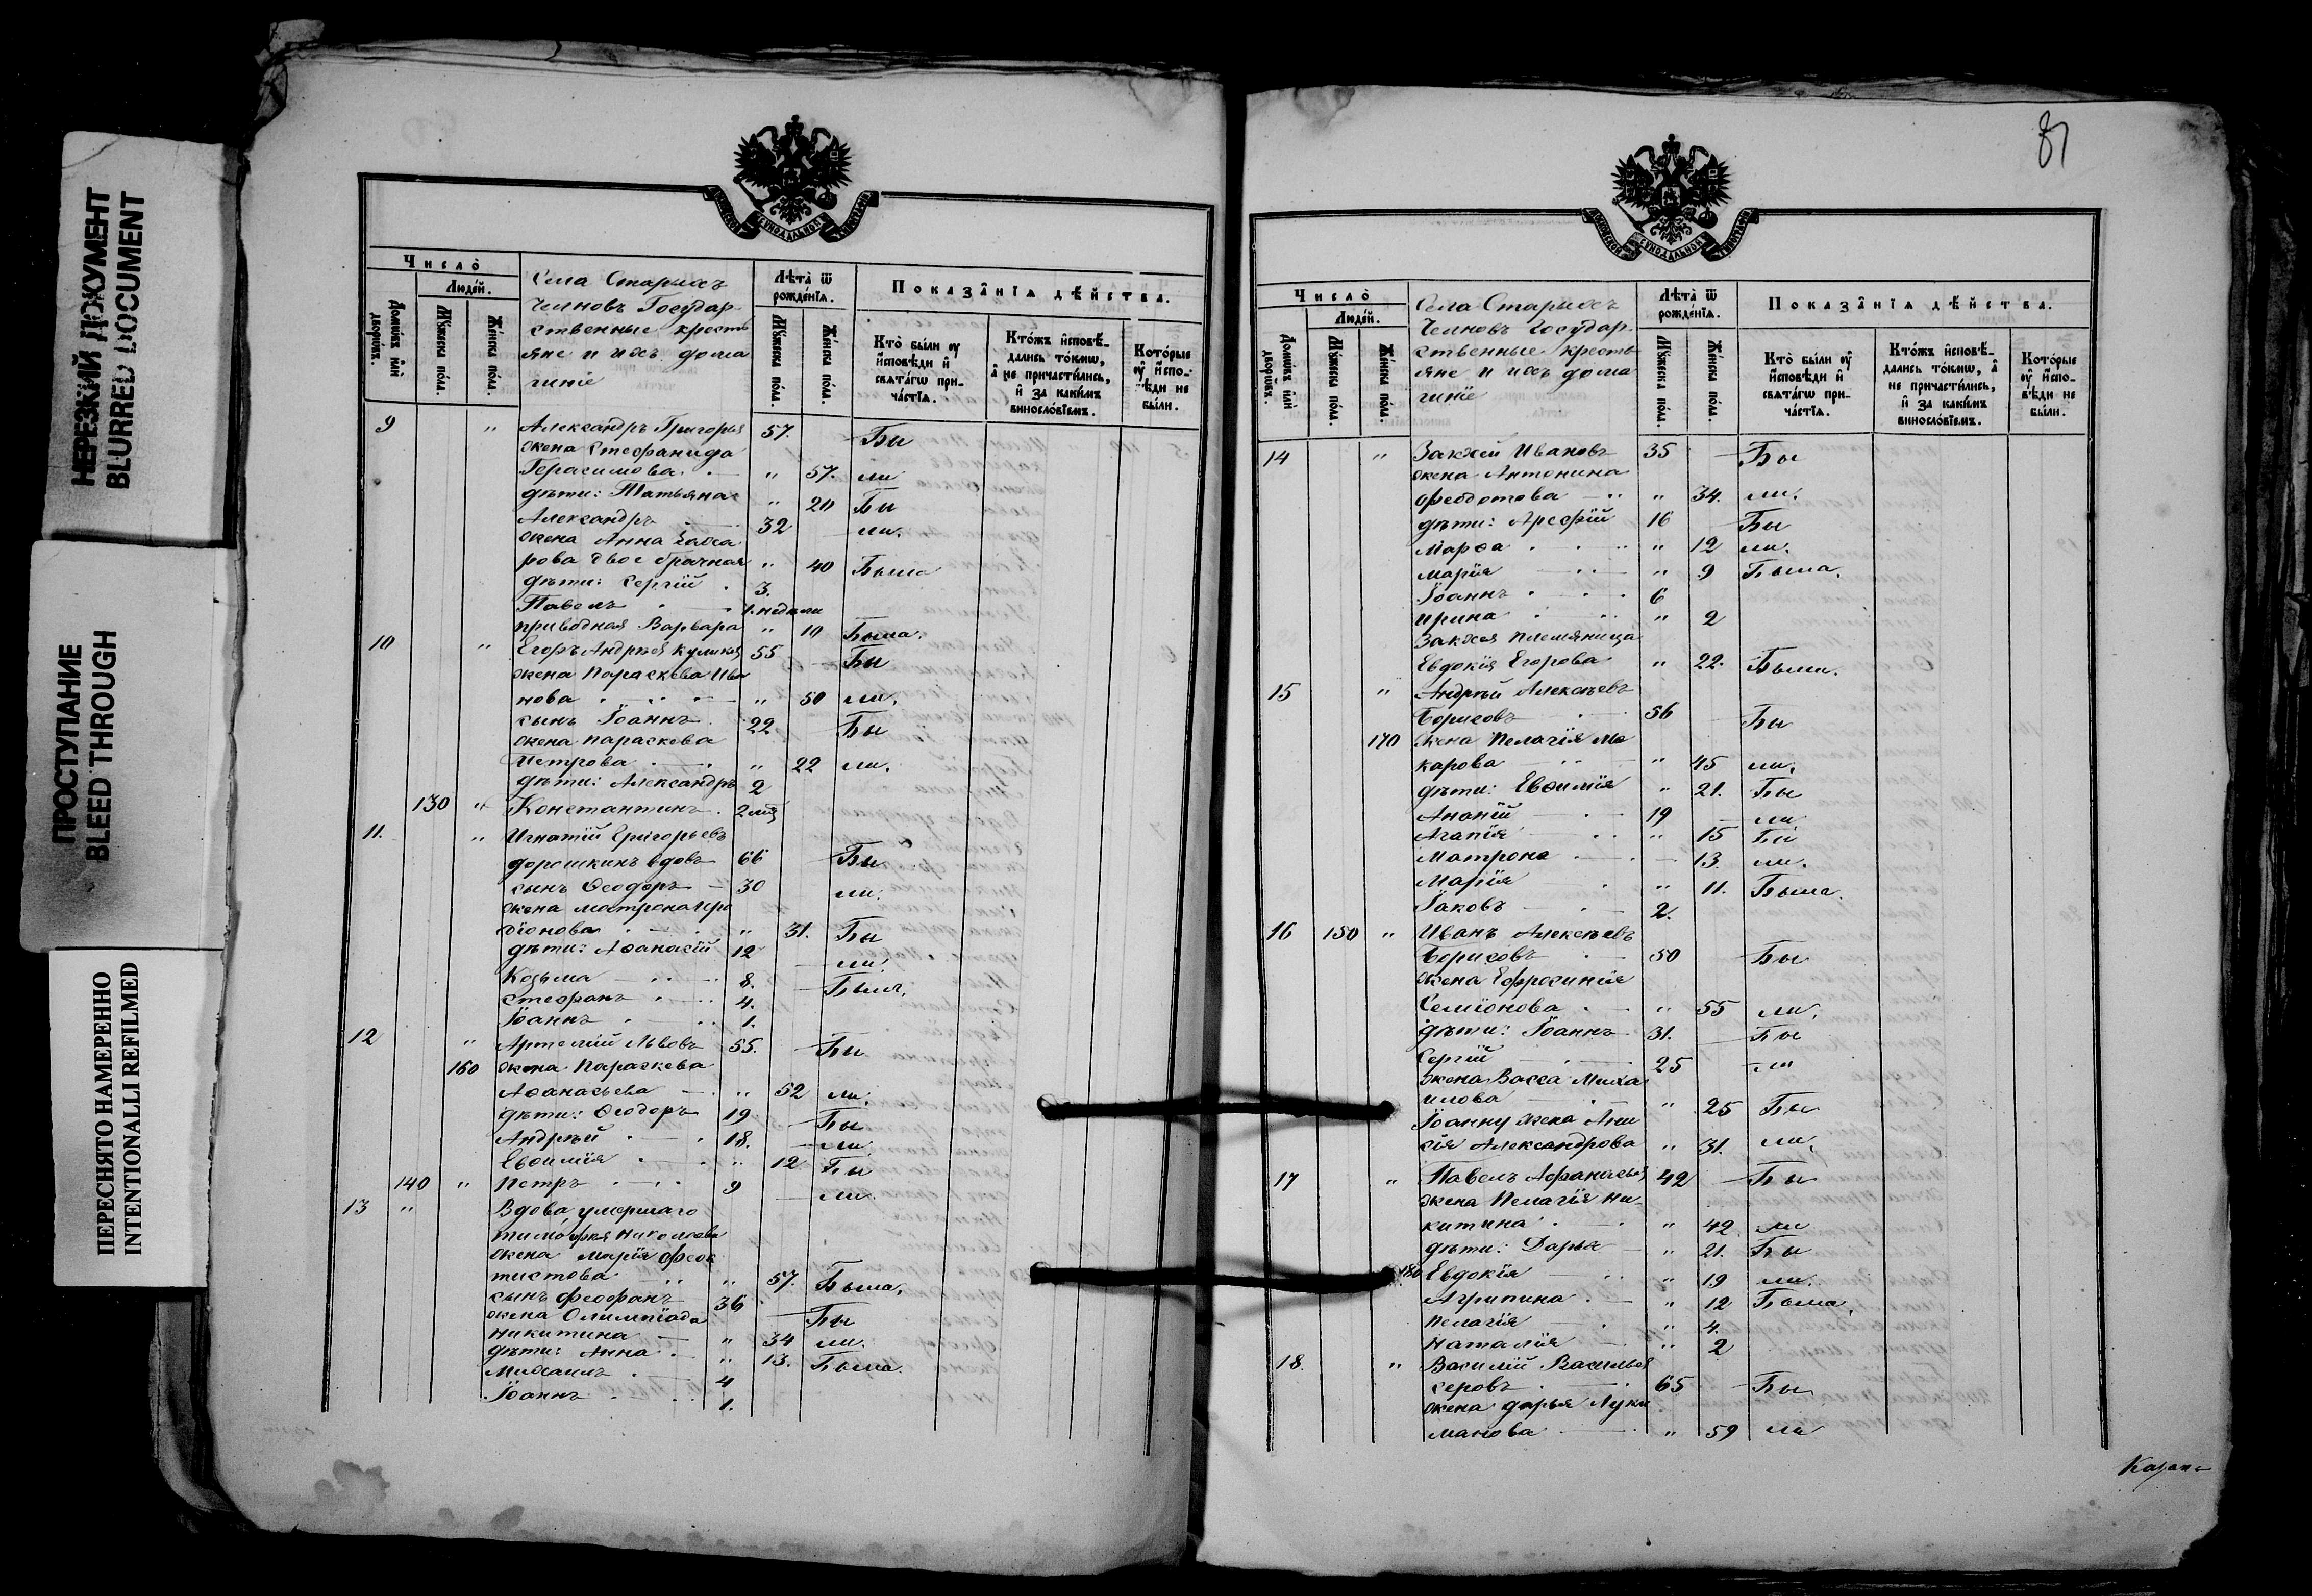 НЕРЕЗКИЙ ДОКУМЕНТ
BLURRED DOCUMENT
ПРОСТУПАНИЕ
BLEED THROUGH
ПЕРЕСНЯТО НАМЕРЕННО
INTENTIONALLI REFILMED
МОСКОВСКОЙ СѴНОДАЛЬНОЙ ТИПОГРАФІИ
Число̀
Людéй.
Домѡ́въ и҆лѝ дворѡ́въ.
Мꙋ́жеска по́ла.
Же́нска по́ла.
Села Старыхъ
Челновъ Государ
ственные кресть
яне и ихъ дома
шніе
Лѣ́та ѿ рожде́нїѧ.
Мꙋ́жеска по́ла.
Же́нска по́ла.
Показа̂нїѧ дѣ́йства.
Кто̀ бы́ли ᲂу҆ и҆сповѣди и҆ свѧта́гѡ при-ча́стїѧ.
Кто́жъ и҆сповѣ-дались то́кмѡ, а҆ не причасти́лись, и҆ за каки́мъ винослові́емъ.
Кото́рые ᲂу҆ и҆спо-вѣди не бы́ли.
9 " Александръ Григорьев 57. Бы
жена Стефанида
Герасимова " 57. ли
дѣти: Татьяна " 20 Бы
Александръ 32 ли.
жена Анна Заха
рова двоебрачная " 40 Была
дѣти: Сергій 3.
Павелъ 1. недели
приводная Варвара " 10 Была.
10 " Егоръ Андреев Куликов 55 Бы
жена Параскева Ива
нова " 50 ли.
сынъ Іоаннъ 22 Бы
жена параскева
Петрова " 22 ли.
дѣти: Александръ 2
130 " Константинъ 2 мѣс
11. " Игнатій Григорьевъ
дорошкинъ вдовъ 66 Бы
сынъ Ѳеодоръ 30 ли.
жена матрона Иро
діонова " 31. Бы
дѣти: Аѳанасій 12 ли.
Козьма 8. Были.
Стефанъ 4.
Іоаннъ 1.
12 " Артемій Львовъ 55. Бы
160 жена Параскева
Аѳанасьева " 52 ли.
дѣти: Ѳеодоръ 19 Бы
Андрей 18. ли
Евѳимія " 12 Бы
140 " Петръ 9 ли.
13 " Вдова умершаго
тимофея Николаева
жена марія феок
тистова " 57. Была.
сынъ феофанъ 36 Бы
жена Олимпіада
никитина " 34 ли.
дѣти: Анна " 13. Была.
Михаилъ 4
Іоаннъ 1.
81
МОСКОВСКОЙ СѴНОДАЛЬНОЙ ТИПОГРАФІИ
Число̀
Людéй.
Домѡ́въ и҆лѝ дворѡ́въ.
Мꙋ́жеска по́ла.
Же́нска по́ла.
Села Старыхъ
Челновъ Государ
ственные кресть
яне и ихъ дома
шніе
Лѣ́та ѿ рожде́нїѧ.
Мꙋ́жеска по́ла.
Же́нска по́ла.
Показа̂нїѧ дѣ́йства.
Кто̀ бы́ли ᲂу҆ и҆сповѣди и҆ свѧта́гѡ при-ча́стїѧ.
Кто́жъ и҆сповѣ-дались то́кмѡ, а҆ не причасти́лись, и҆ за каки́мъ винослові́емъ.
Кото́рые ᲂу҆ и҆спо-вѣди не бы́ли.
14 " Закхей Ивановъ 35 Бы
жена Антонина
феодотова " 34. ли.
дѣти: Арефій 16 Бы
Марѳа " 12 ли.
марія " 9 Была.
Іоаннъ 6
ирина " 2
Закхея племяница
Евдокія Егорова " 22. Были.
15 " Андрей Алексѣевъ
Борисовъ 56 Бы
170 жена Пелагія Ма
карова " 45 ли.
дѣти: Евѳимія " 21. Бы
Ананій 19 ли
Агапія " 15 Бы
Матрона 13. ли.
Марія " 11. Была.
Іаковъ 2.
16 150 " Иванъ Алексѣевъ
Борисовъ 50 Бы
жена Ефросинія
Семіонова " 55 ли.
дѣти: Іоаннъ 31. Бы
Сергій 25 ли
жена Васса Миха
илова " 25 Бы
Іоанну жена Ани
сія Александрова " 31. ли.
17 " Павелъ Афанасьев 42 Бы
жена Пелагія Ни
китина " 42 ли
дѣти: Дарья " 21. Бы
180 Евдокія " 19 ли.
Агрипина " 12 Была.
пелагія " 4.
Наталія " 2
18. " Василій Васильев
серовъ 65 Бы
жена дарья Луки
манова " 59 ли
Казан